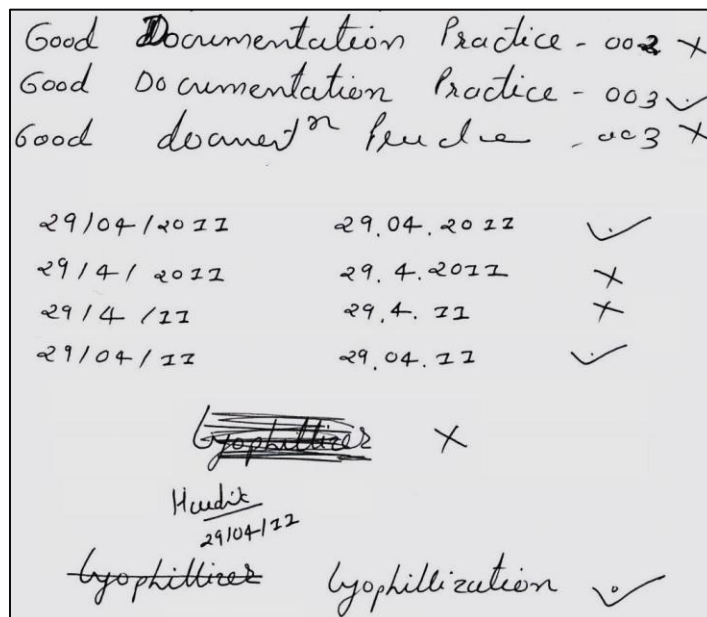 Good Documentation Practice - 002 ✗
Good Documentation Practice - 003 ✓
Good - 003 ✗
29/04/2011 29.04.2011 ✓
29/4/2011 29.4.2011 ✗
29/4/11 29.4.11 ✗
29/04/11 29.04.11 ✓
lyophillizer ✗
Hardik
29/04/11
lyophillizer lyophillization ✓